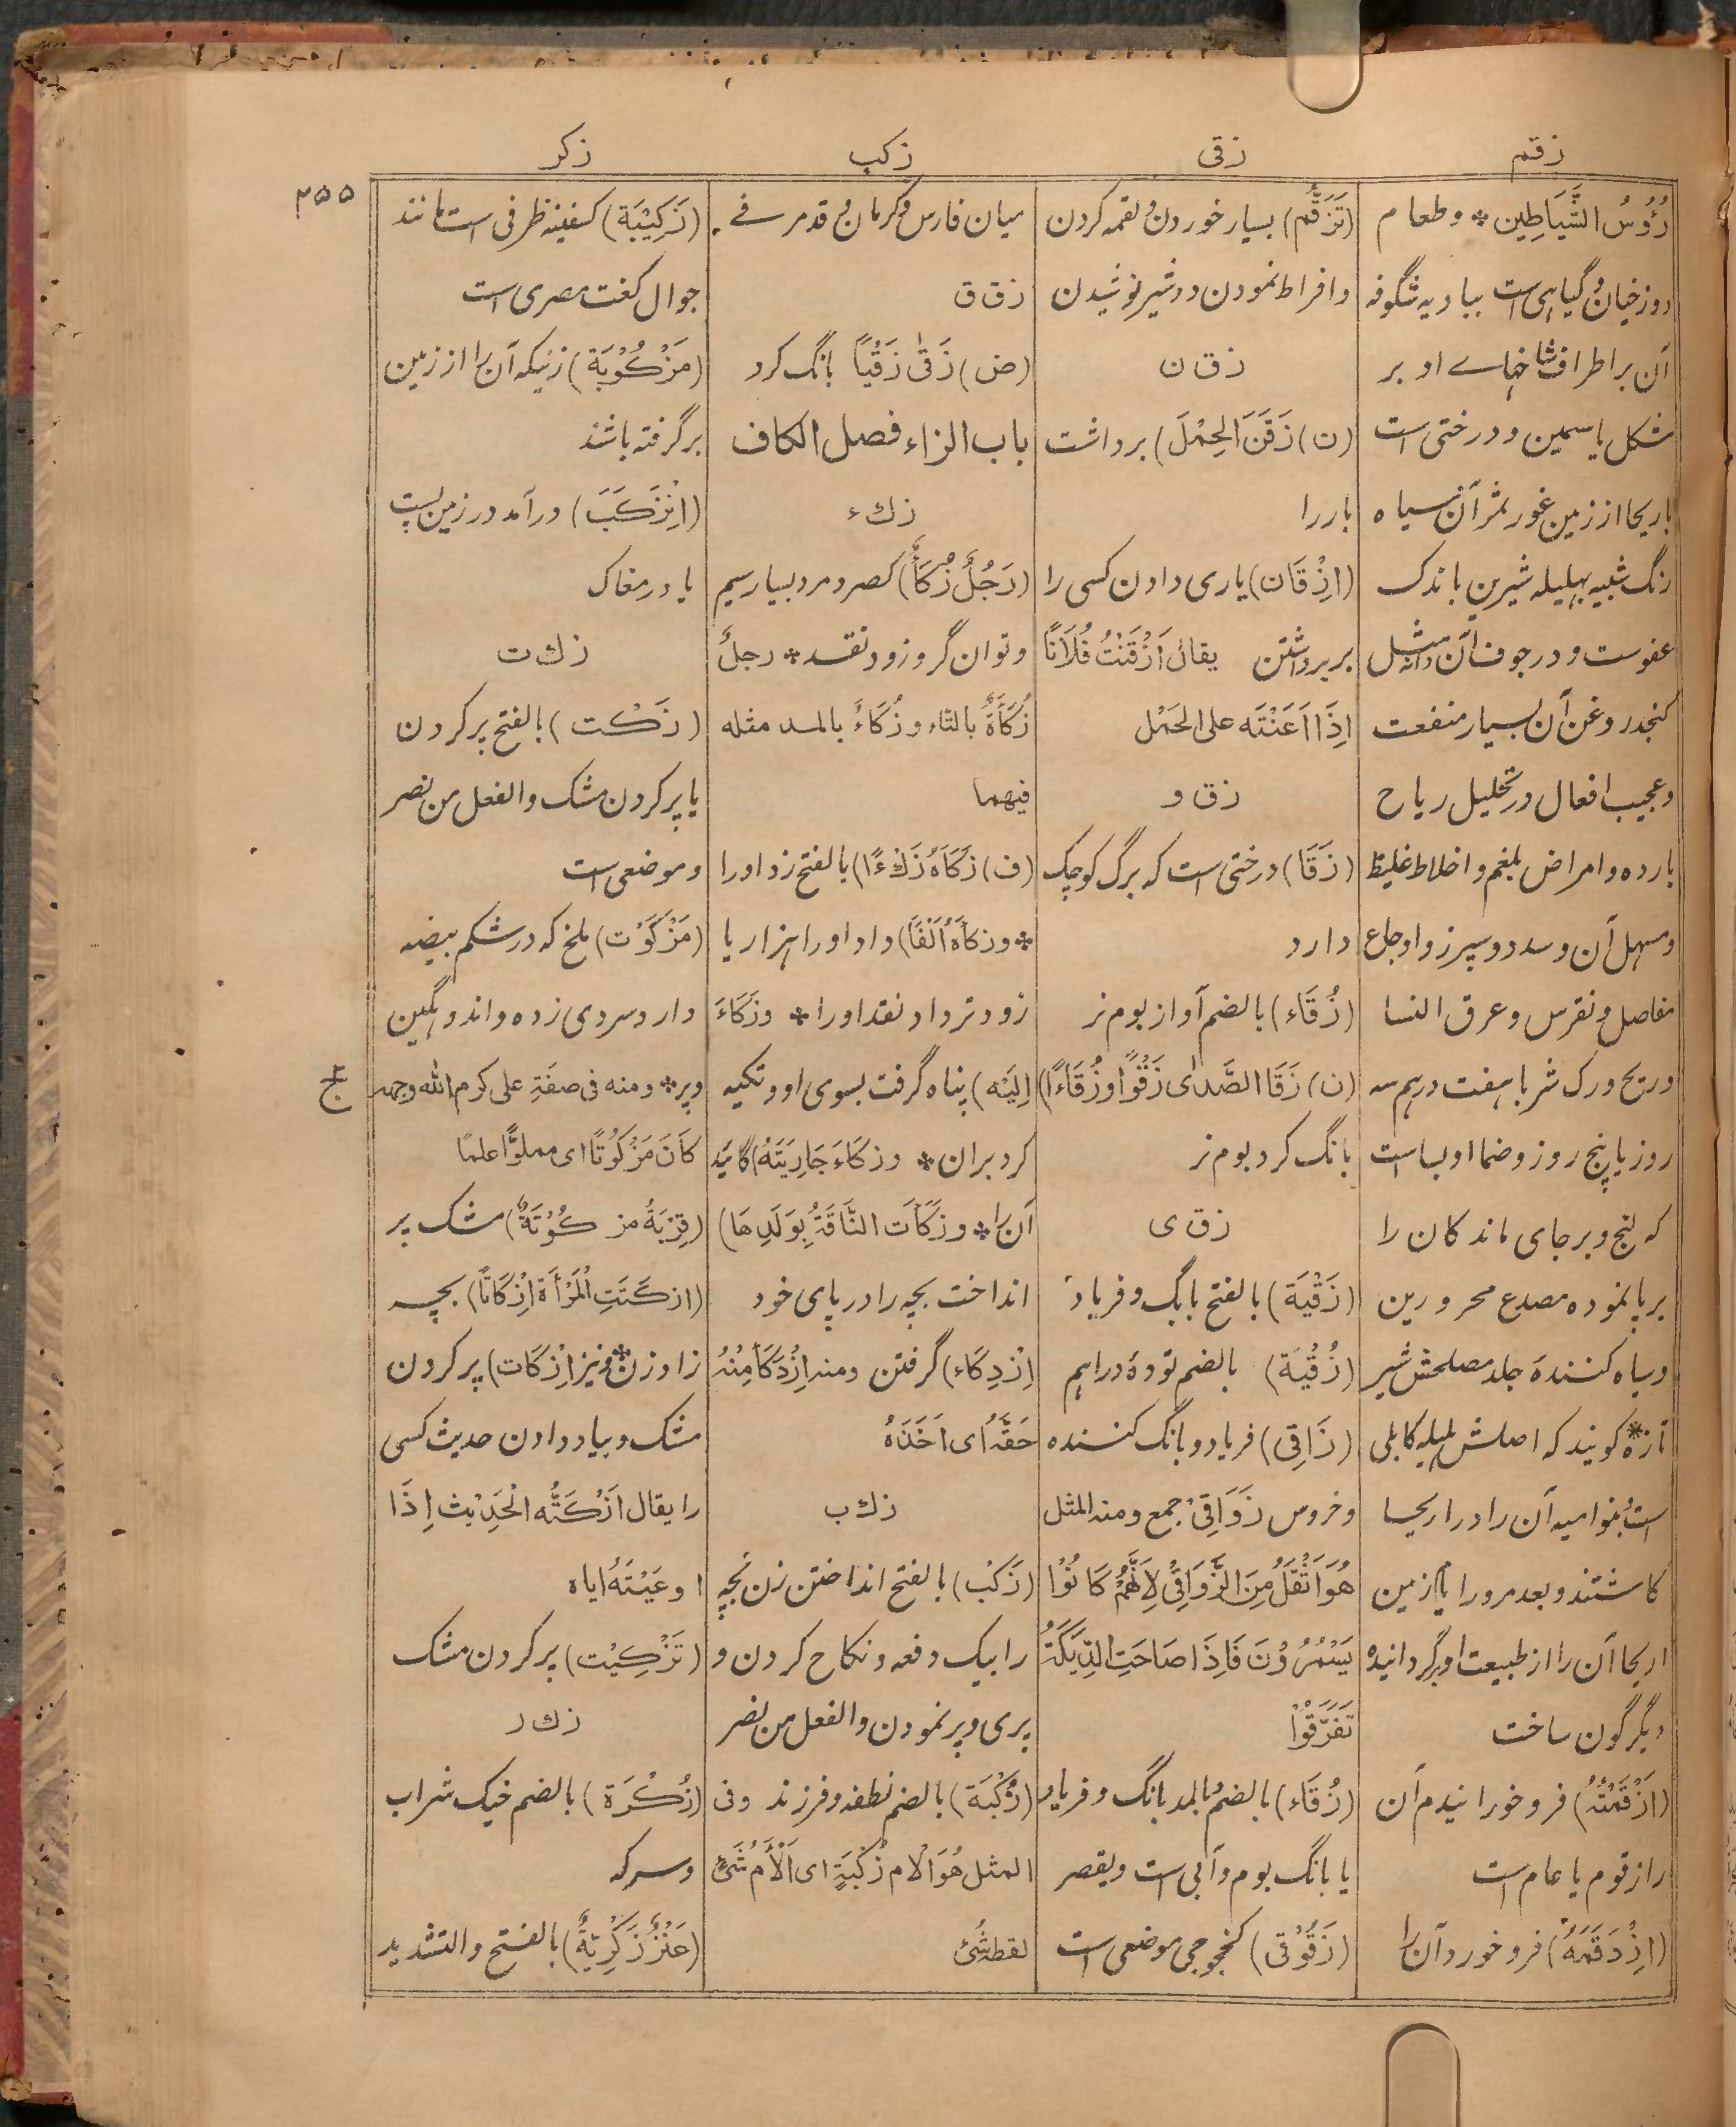 زقم
زقی
زکب
زکر
۲۵۵
رُؤُسُ الشَّیَاطِین * و طعام
دوزخیان و گیاهی است ببادیه شگوفه
آن بر اطراف شاخہاے او بر
شکل یاسمین و درختی است
باریحا از زمین غور ثمر آن سیاه
رنگ شبیه بهلیله شیرین باندک
عفوست و در جوف آن دانه مثل
کنجد روغن آن بسیار منفعت
و عجیب افعال در تحلیل ریاح
بارده و امراض بلغم و اخلاط غلیظ
و مسهل آن و سدد و سپرز و اوجاع
مفاصل و نقرس و عرق النسا
و ریح ورک شربا هفت درهم سه
روز یا پنج روز و ضمادا وبسا است
که لنج و برجای ماندکان را
برپا نموده مصدع محرورین
و سیاه کنندهٔ جلد مصلحش شیر
تازه * گویند که اصلش هلیله کابلی
است بنوامیه آن را در اریحا
کاشتند و بعد مرور ایام زمین
اریحا آن را از طبیعت او برگردانیده
دیگرگون ساخت
(اَزْقَمْتُهُ) فرو خورانیدم آن
را زقوم یا عام است
(اِزْدَقَمَهُ) فرو خورد آن را
(تَزَقُّم) بسیار خوردن و لقمه کردن
و افراط نمودن در شیر نوشیدن
ز ق ن
(ن) زَقَنَ الحِمْلَ) برداشت
بار را
(اِزْقَان) یاری دادن کسی را
بر برداشتن یقال اَزْقَنْتُ فُلَانًا
اِذَا اَعَنْتَه علی الحَمْل
ز ق و
(زَقَا) درختی است که برگ کوچک
دارد
(زُقَاء) بالضم آواز بوم نر
(ن) زَقَا الصَّدیٰ زَقْوًا وزُقَاءً)
بانگ کرد بوم نر
ز ق ی
(زَقْیَة) بالفتح بانگ و فریاد
(زُقْیَة) بالضم تودهٔ دراهم
(زَاقِی) فریاد و بانگ کننده
و خروس زَوَاقِیْ جمع ومنه المثل
هُوَ اَثْقَلُ مِنَ الزَّوَاقِیْ لِاَنَّهُمْ کَانُوْا
یَسْمُرُوْنَ فَاِذَا صَاحَتِ الدِّیَکَةُ
تَفَرَّقُوْا
(زُقَاء) بالضم بالمد بانگ و فریاد
یا بانگ بوم و آبی است و یقصر
(زَقُوْقٰی) کخجوجی موضعی است
میان فارس و کرمان و قد مر فے
ز ق ق
(ض) زَقٰی زَقْیًا بانگ کرد
باب الزاء فصل الکاف
ز ك ء
(رَجُلٌ زُکَأٌ) کصرد مرد بسیار سیم
و توانگر و زود نقد * رجلٌ
زُکَأَةٌ بالتاء و زُکَاءٌ بالمد مثله
فیهما
(ف) زَکَاَهُ زَكْءًا) بالفتح زد او را
* و زکاَهُ اَلْفًا) داد او را هزار یا
زودتر داد نقد او را * و زَکَاءَ
اِلَیْه) پناه گرفت بسوی او و تکیه
کرد بران * و زکاءَ جَارِیَتَهُ) گائید
آن را * و زَکَأَت النَّاقَةُ بِوَلَدِهَا)
انداخت بچه را در پای خود
(اِزْدِکَاء) گرفتن ومنه اِزْدَکَأَ مِنْهُ
حَقَّهُ ای اَخَذَهُ
ز ك ب
(زَکْب) بالفتح انداختن زن بچه
را بیک دفعه و نکاح کردن و
پری و پر نمودن و الفعل من نصر
(زُکْبَة) بالضم نطفه و فرزند و فی
المثل هُوَ اَلْاَم زُکْبَةٍ ای اَلْأَمُ شَیْءٍ
لقطه شُئ
(زَکِیْبَة) کسفینه ظرفی است مانند
جوال لغت مصری است
(مَزْکُوْبَة) زنیکه آن را از زمین
بر گرفته باشند
(اِنْزَکَبَ) در آمد در زمین پست
یا در مغاک
ز ك ت
(زَکْت) بالفتح پر کردن
یا پر کردن مشک و الفعل من نصر
و موضعی است
(مَزْکُوْت) ملخ که در شکم بیضه
دارد و سردی زده و اندوهگین
و پر * و منه فی صفَةِ علی کرم الله وجهه
ج
کَانَ مَزْکُوْتًا ای مملوًّا علمًا
(قِرْبَةٌ مزکُوْتَةٌ) مشک پر
(ازکَتَتِ الْمَرْأَة اِزْکَاتًا) بچه
زاد زن * و نیز اِزْکَات) پر کردن
مشک و بیاد دادن حدیث کسی
را یقال اَزْکَتُّه الْحَدِیْث اِذَا
اوعَیْتَهُ ایاه
(تَزْکِیْت) پر کردن مشک
ز ك ر
(زُکْرَة) بالضم خیک شراب
و سرکه
(عَنْزٌ زَکْرِیَّةٌ) بالفتح والتشدید